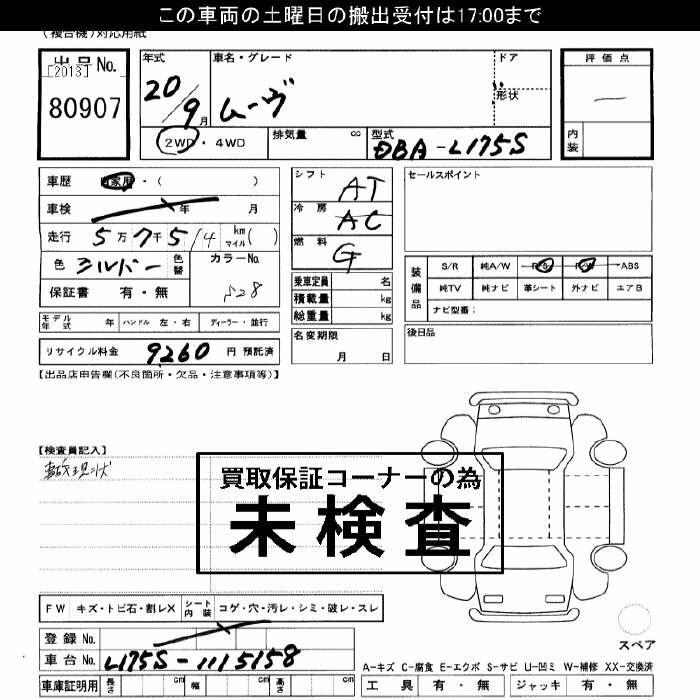 この車両の土曜日の搬出受付は17:00まで
(複合機)対応用紙
出品No.
[2013]
80907
年式 車名・グレード ドア
20/9月 ムーヴ 形状
2WD・4WD 排気量 cc 型式 DBA-L175S
評価点
内装
車歴 自家用・( )
車検 年 月
走行 5万7千5/4 km マイル( )
色 シルバー 色替 カラーNo.
保証書 有・無 S28
モデル年式 年 ハンドル 左・右 ディーラー・並行
リサイクル料金 9260 円 預託済
シフト AT
冷房 AC
燃料 G
乗車定員 名
積載量 kg
総重量 kg
名変期限
月 日
セールスポイント
装備品
S/R 純A/W P/S P/W ABS
純TV 純ナビ 革シート 外ナビ エアB
ナビ型番:
後日品
【出品店申告欄(不良箇所・欠品・注意事項等)】
【検査員記入】
現状
買取保証コーナーの為
未検査
FW キズ・トビ石・割レX シート内装 コゲ・穴・汚レ・シミ・破レ・スレ
登録No.
車台No. L175S-1115158
車庫証明用 長さ cm 幅 cm 高さ cm
スペア
A-キズ C-腐食 E-エクボ S-サビ U-凹ミ W-補修 XX-交換済
工具 有・無 ジャッキ 有・無